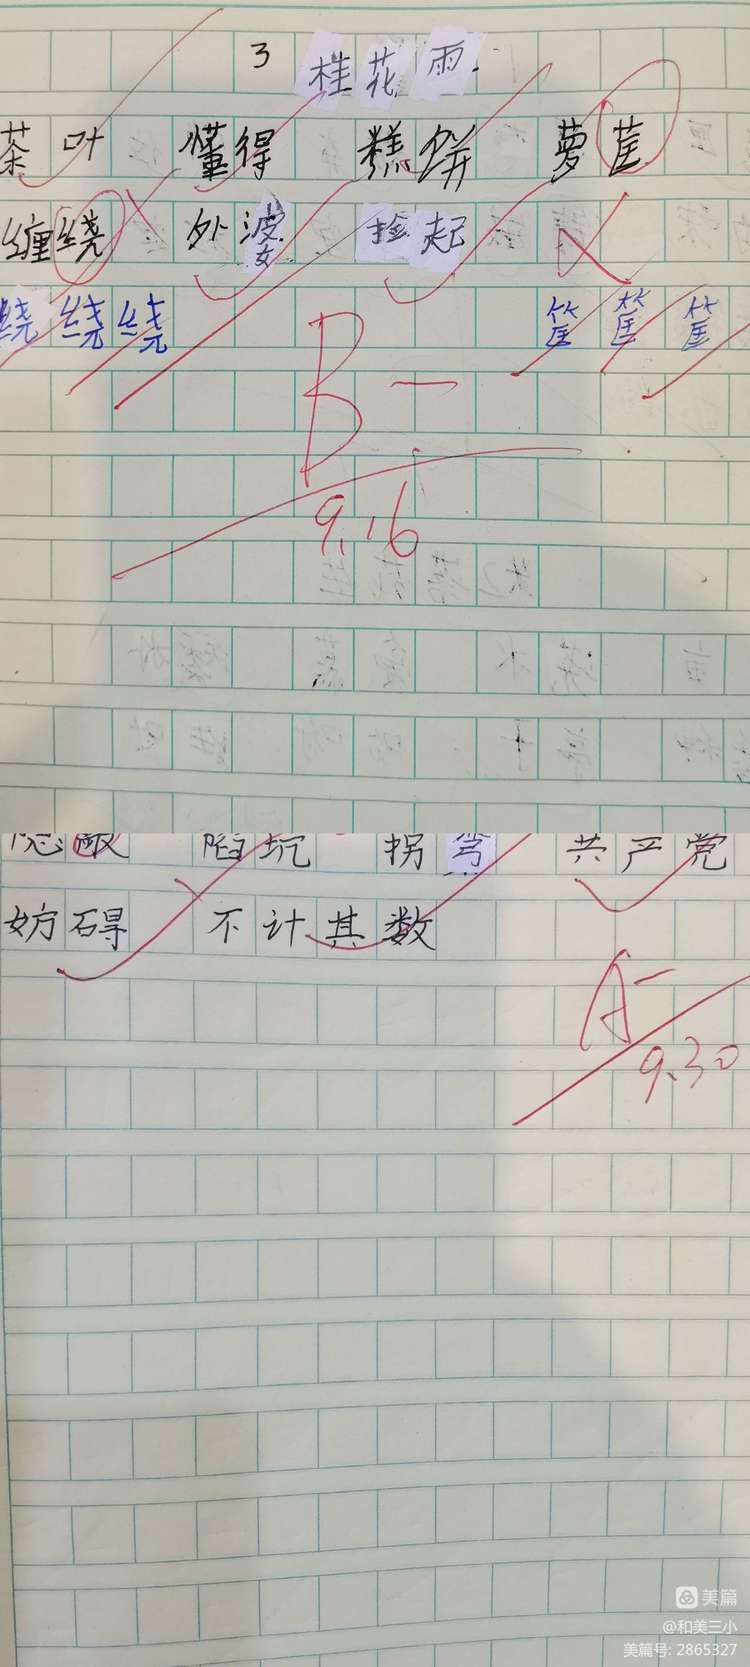 3 桂花雨
茶叶 懂得 糕饼 萝莛
缠绕 外婆 捡起
绕绕绕 筐筐筐
B-
9.16
隐蔽 陷坑 拐弯 共产党
妨碍 不计其数
A-
9.30
美篇
@和美三小
美篇号: 2865327